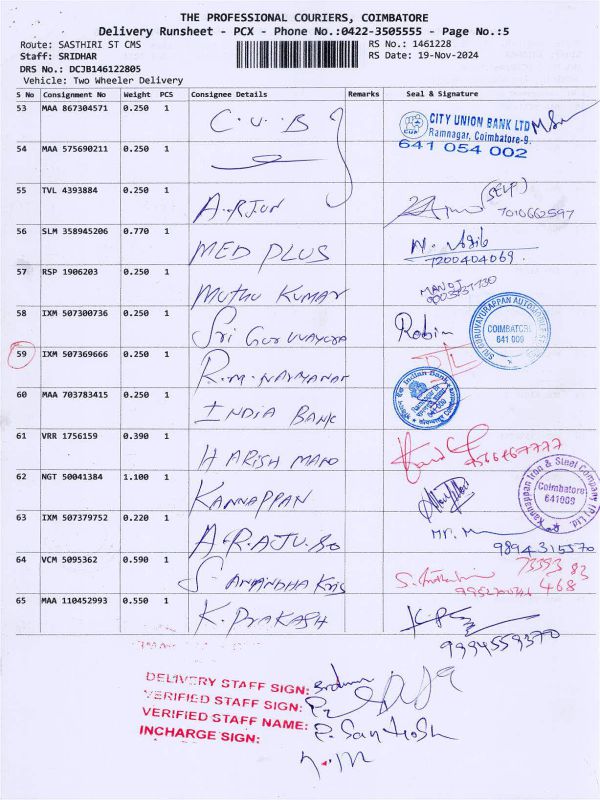 THE PROFESSIONAL COURIERS, COIMBATORE
Delivery Runsheet - PCX - Phone No.:0422-3505555 - Page No.:5
Route: SASTHIRI ST CMS RS No.: 1461228
Staff: SRIDHAR RS Date: 19-Nov-2024
DRS No.: DCJB146122805
Vehicle: Two Wheeler Delivery
S No Consignment No Weight PCS Consignee Details Remarks Seal & Signature
53 MAA 867304571 0.250 1 C.U.B CITY UNION BANK LTD
Ramnagar, Coimbatore-9.
641 054 002
54 MAA 575690211 0.250 1
55 TVL 4393884 0.250 1 A.RJUN (SELF)
7010662597
56 SLM 358945206 0.770 1 MED PLUS
7200404069.
57 RSP 1906203 0.250 1 MUTHU KUMAR MANOJ
58 IXM 507300736 0.250 1 Sri Guruvayura Robin SRI GURUVAYURAPPAN AUTOMOBILES
COIMBATORE
641 009
59 IXM 507369666 0.250 1
60 MAA 703783415 0.250 1 INDIA BANK Indian Bank
61 VRR 1756159 0.390 1 HARISH MANO
62 NGT 50041384 1.100 1 KANNAPPAN Kannappan Iron & Steel Company (P) Ltd.
Coimbatore
641009
63 IXM 507379752 0.220 1 A.RAJU.So Mr.
9894315570
64 VCM 5095362 0.590 1
65 MAA 110452993 0.550 1 K.PRAKASH
9994559370
DELIVERY STAFF SIGN:
VERIFIED STAFF SIGN:
VERIFIED STAFF NAME: P. Santosh
INCHARGE SIGN: